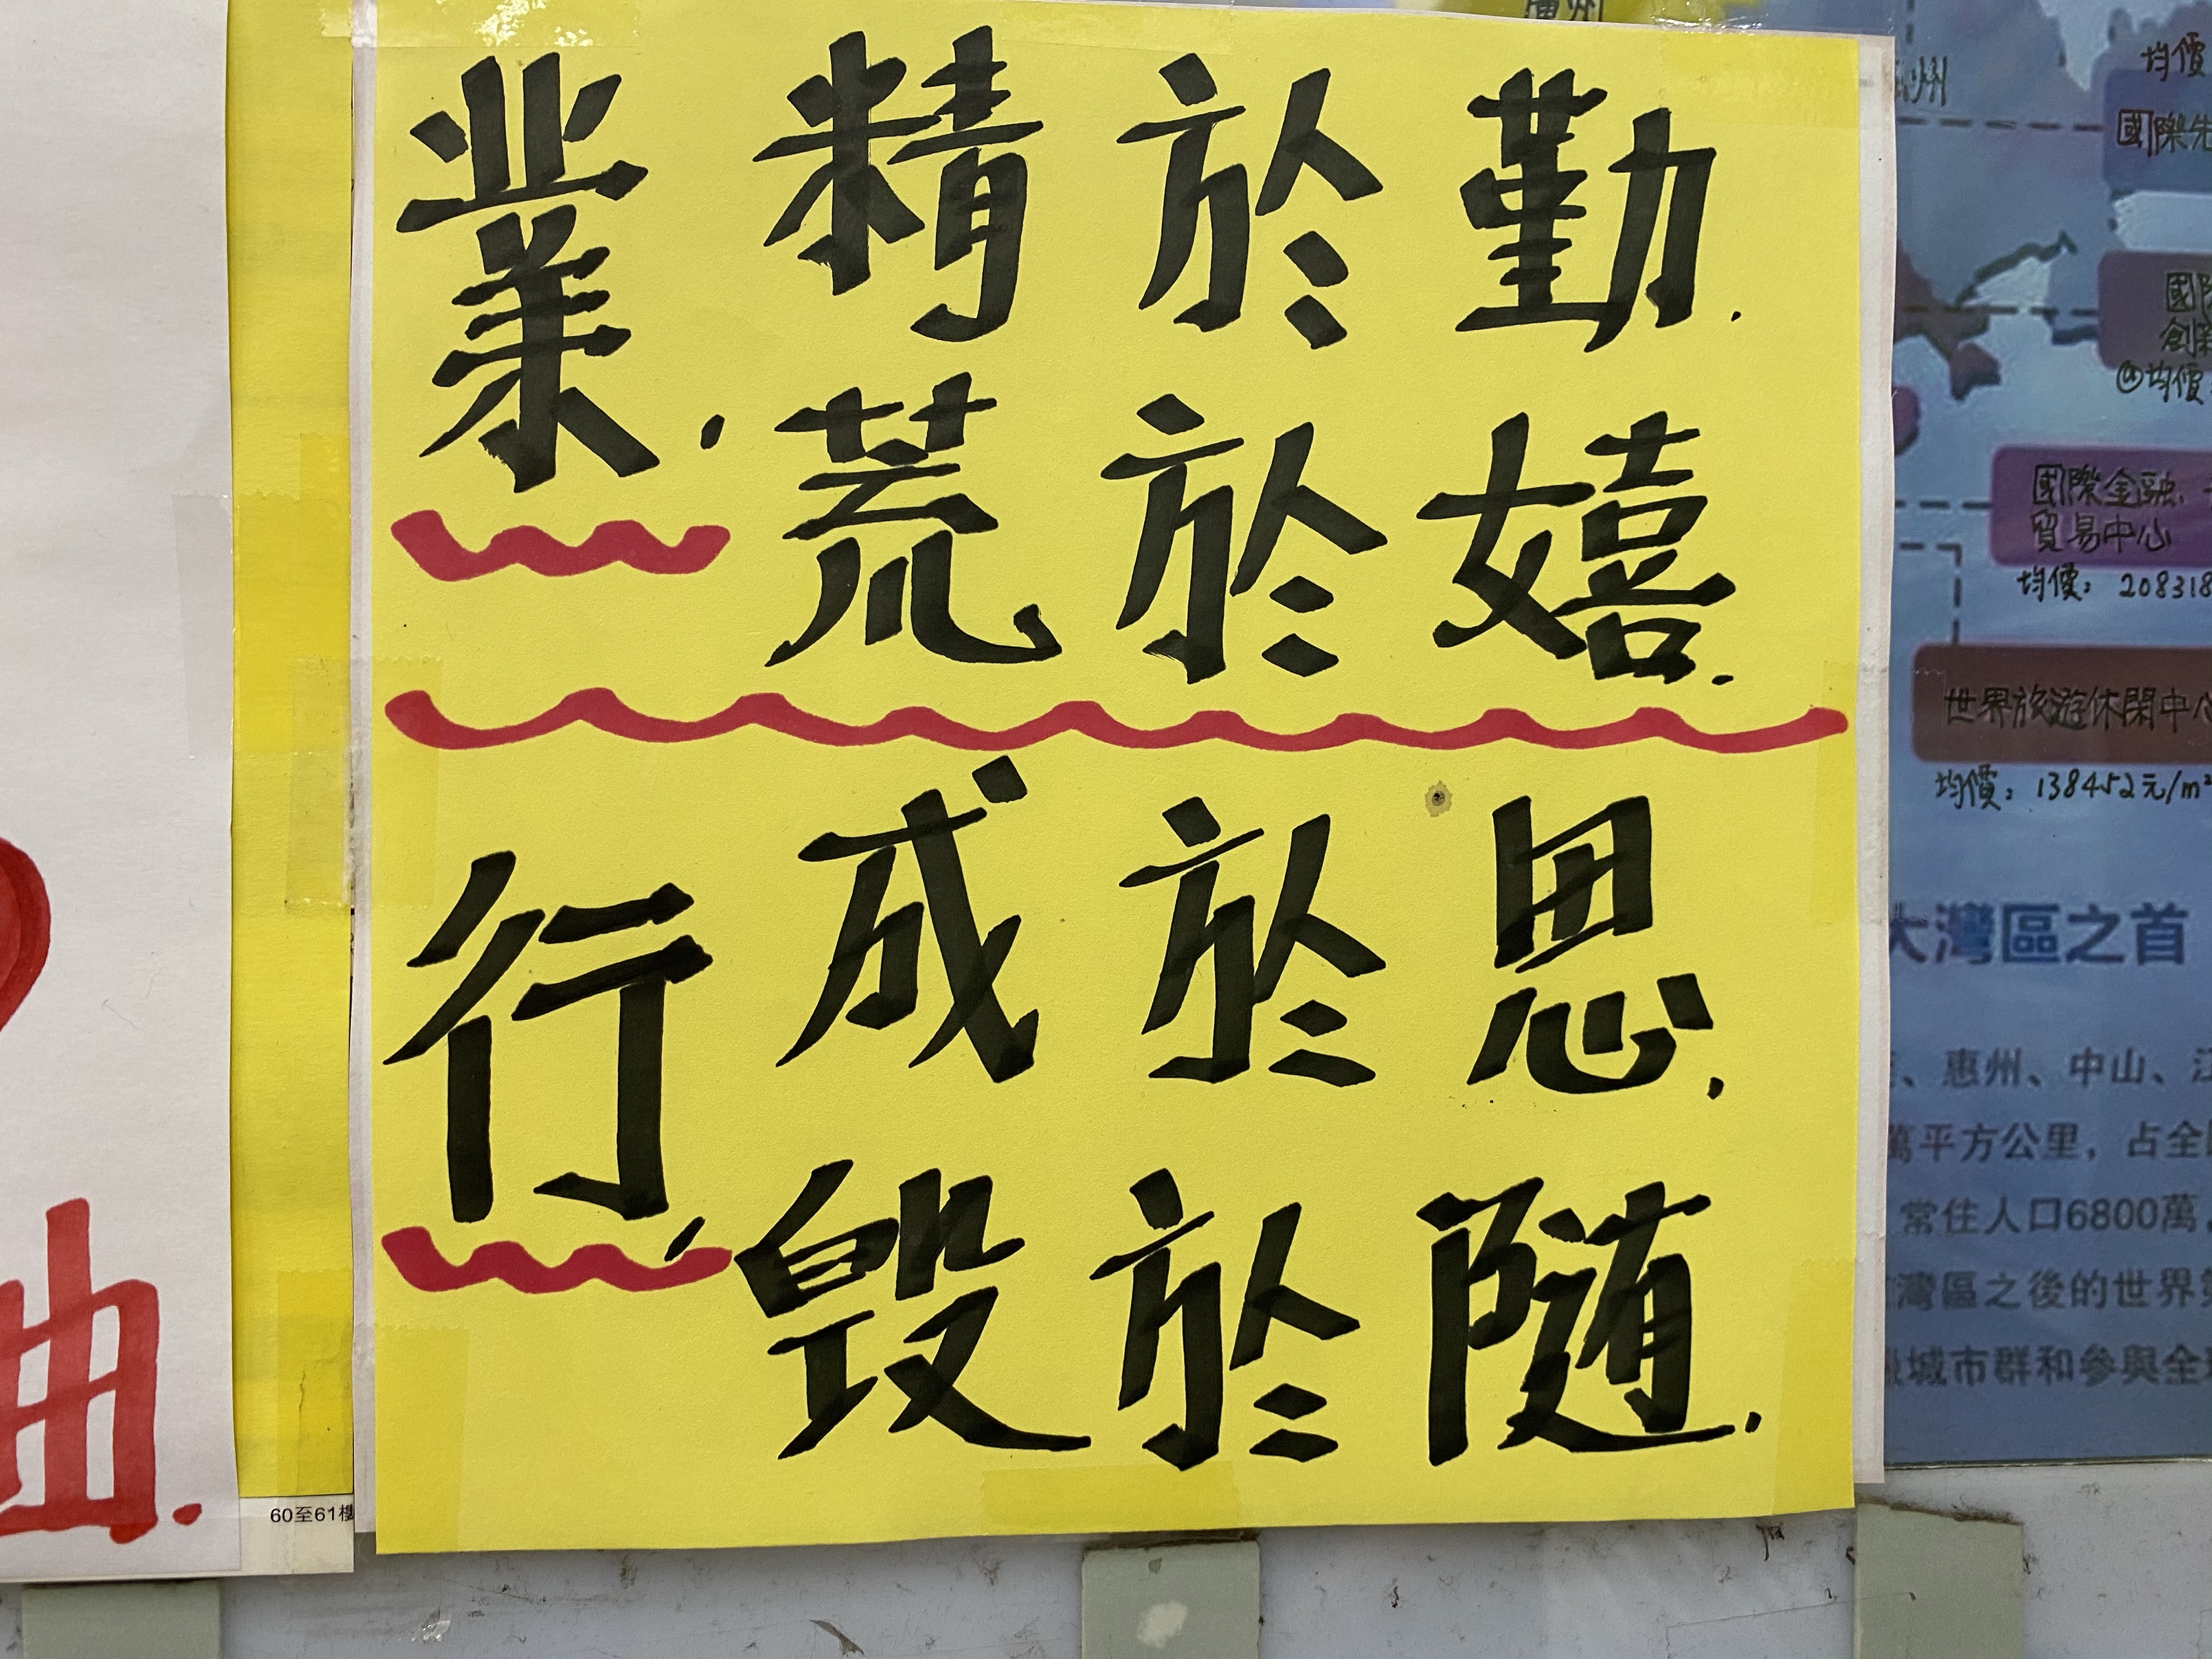 業，
精於勤．
荒於嬉．
行，
成於思．
毀於随．
60至61樓
廣州
均價
均價
國際金融、
貿易中心
均價：208318
世界旅遊休閑中心
均價：138452元/m²
大灣區之首
、惠州、中山、江
萬平方公里，占全
常住人口6800萬
灣區之後的世界
城市群和參與全